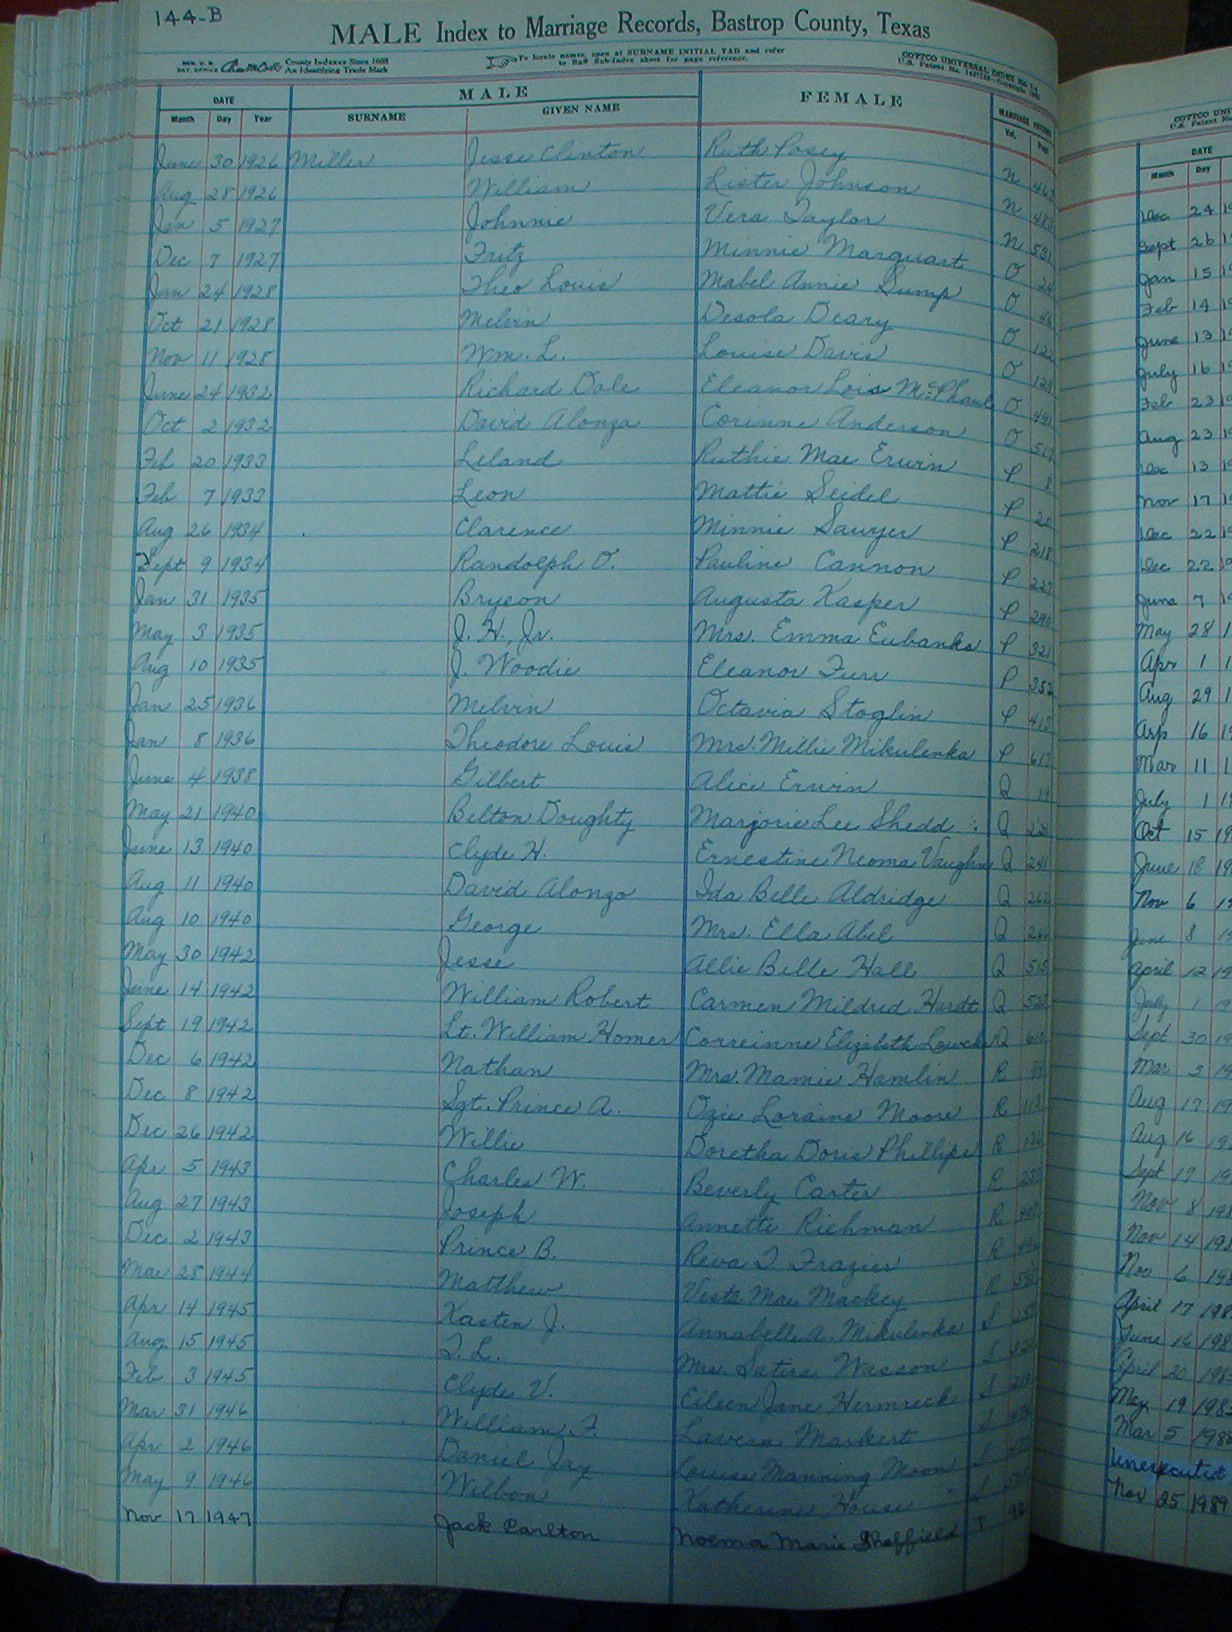 144-B
MALE Index to Marriage Records, Bastrop County, Texas
County Indexes Since 1888
An Identifying Trade Mark
To locate names, open at SURNAME INITIAL TAB and refer
to Buff Sub-Index sheet for page reference.
COTTCO UNIVERSAL INDEX
DATE MALE FEMALE MARRIAGE RECORD
Month Day Year SURNAME GIVEN NAME Vol. Page
June 30 1926 Miller Jesse Clinton Ruth Posey N
Aug 28 1926 William Lister Johnson N
Jan 5 1927 Johnnie Vera Taylor N 531
Dec 7 1927 Fritz Minnie Marquart O
Jan 24 1928 Theo Louis Mabel Annie Sump O
Oct 21 1928 Melvin Desola Deary O
Nov 11 1928 Wm. L. Louise Davis O
June 24 1932 Richard Dale Eleanor Lois McPhaul O
Oct 2 1932 David Alonza Corinne Anderson O
Feb 20 1933 Leland Ruthie Mae Erwin P 8
Feb 7 1933 Leon Mattie Seidel P
Aug 26 1934 Clarence Minnie Sawyer P 218
Sept 9 1934 Randolph O. Pauline Cannon P
Jan 31 1935 Bryson Augusta Kasper P 290
May 3 1935 J. H., Jr. Mrs. Emma Eubanks P 321
Aug 10 1935 J. Woodie Eleanor Furr P 352
Jan 25 1936 Melvin Octavia Stoglin P
Jan 8 1936 Theodore Louis Mrs. Millie Mikulenka P
June 4 1938 Gilbert Alice Erwin Q
May 21 1940 Belton Doughty Marjorie Lee Shedd Q
June 13 1940 Clyde H. Ernestine Neoma Vaughn Q 241
Aug 11 1940 David Alonzo Ida Belle Aldridge Q
Aug 10 1940 George Mrs. Ella Abel Q
May 30 1942 Jesse Allie Belle Hall Q 515
June 14 1942 William Robert Carmen Mildred Hardt Q
Sept 19 1942 Lt. William Homer Correinne Elizabeth Q
Dec 6 1942 Nathan Mrs. Mamie Hamlin R
Dec 8 1942 Sgt. Prince A. Ozie Loraine Moore R
Dec 26 1942 Willie Doretha Doris Phillips R
Apr 5 1943 Charles W. Beverly Carter R
Aug 27 1943 Joseph Annette Richman R
Dec 2 1943 Prince B. Reva T. Frazier R
Mar 28 1944 Matthew Vesta Mae Mackey R
Apr 14 1945 Kasten J. Annabelle A. Mikulenka S
Aug 15 1945 T. L. Mrs. Wasson S
Feb 3 1945 Clyde V. Eileen Jane S
Mar 31 1946 William F. Lavera Markert S
Apr 2 1946 Daniel Jay Louise Manning Moon S
May 9 1946 Wilbon Katherine House S
Nov 17 1947 Jack Carlton Noema Marie Sheffield T
DATE
Month Day
Dec 24
Sept 26
Jan 15
Feb 14
June 13
July 16
Feb 23
Aug 23
Dec 13
Nov 17
Dec 22
Dec 22
June 7
May 28
Apr 1
Aug 29
Arp 16
Mar 11
July 1
Oct 15
June 18
Nov 6
June 8
April 12
July 1
Sept 30
Mar 3
Aug 17
Aug 16
Sept 17
Nov 8
Nov 14
Nov 6
April 17
June 16
April 20
May 19
Mar 5 1988
Unexecuted
Nov 25 1989